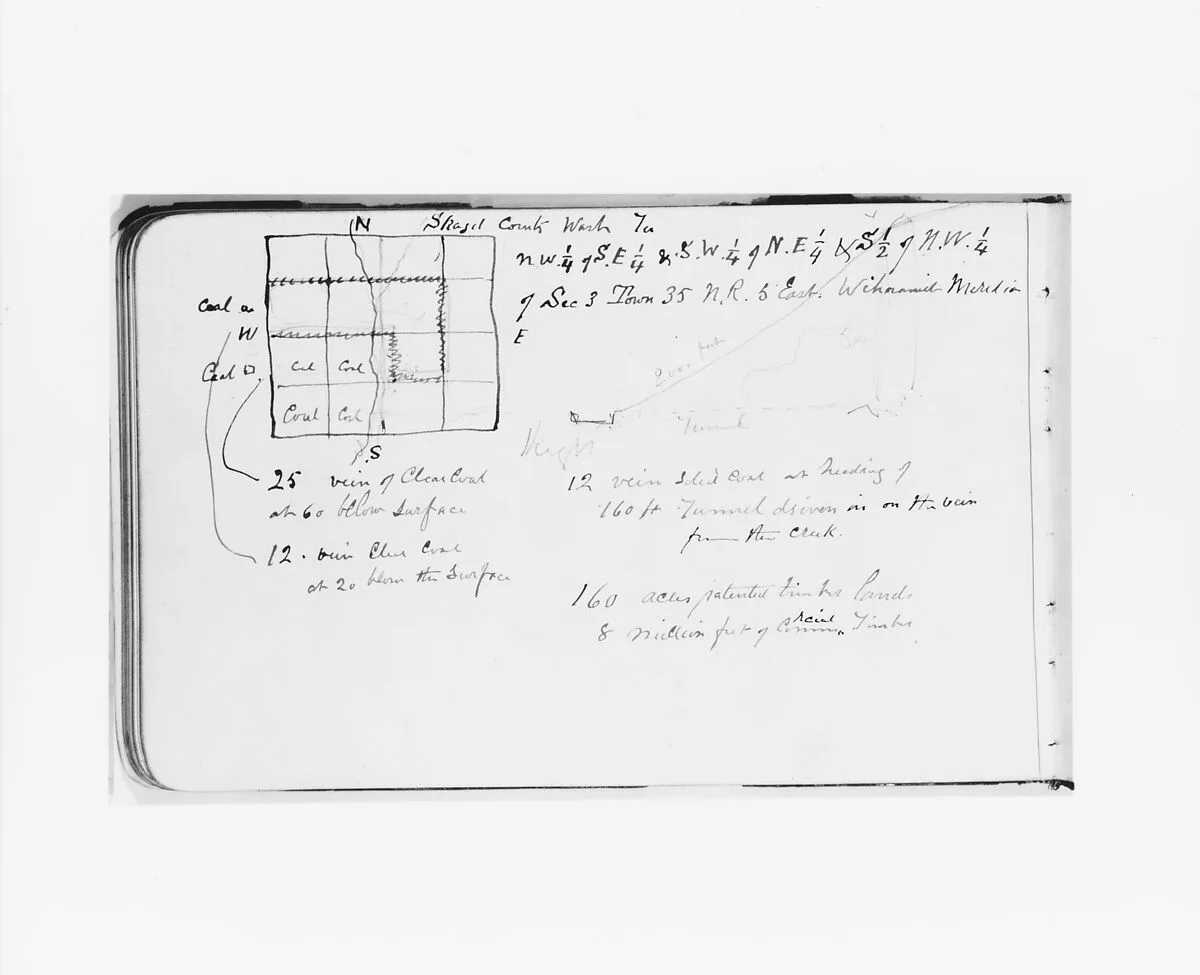 N
Skagit County Wash Ter
N.W. 1/4 of S.E 1/4 & S.W. 1/4 of N.E 1/4 & S 1/2 of N.W. 1/4
of Sec 3 Town 35 N.R. 5 East. Wilnamit Meredian
Coal
W
E
Coal
Col Coal
Coal Col
S
2000 feet
Tunnel
25 vein of Clear Coal
at 60 below Surface
12 . vein Clear Coal
at 20 below the Surface
12 vein Solid Coal at heading of
160 ft Tunnel driven in on the vein
from the creek.
160 acres patented timber lands
8 million feet of Commercial Timber